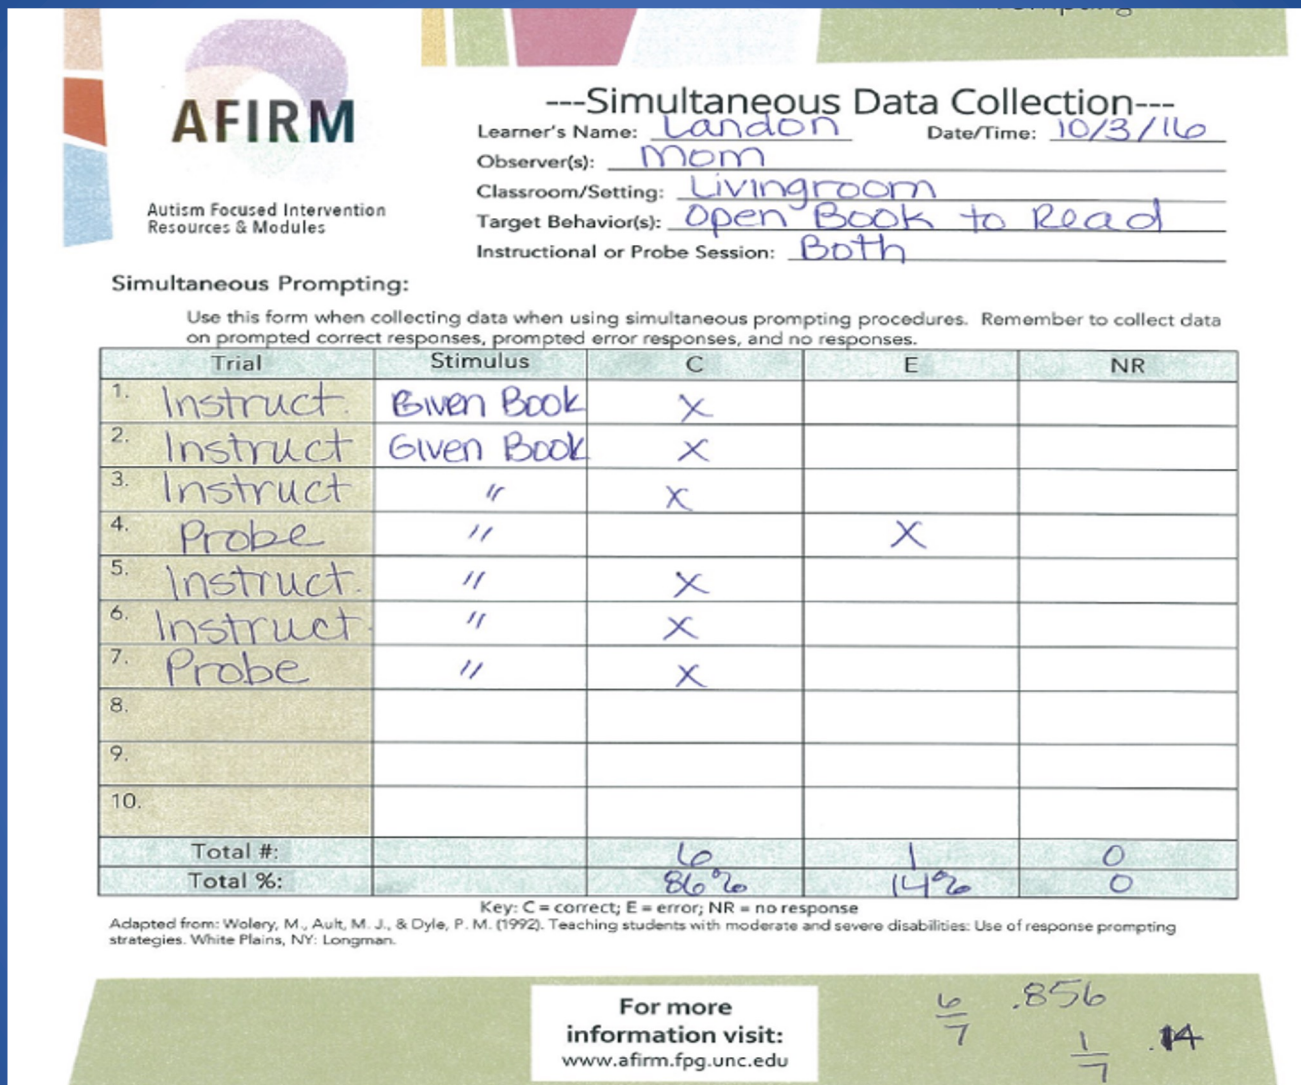 AFIRM
Autism Focused Intervention
Resources & Modules
---Simultaneous Data Collection---
Learner's Name: Landon Date/Time: 10/3/16
Observer(s): Mom
Classroom/Setting: Livingroom
Target Behavior(s): Open Book to Read
Instructional or Probe Session: Both
Simultaneous Prompting:
Use this form when collecting data when using simultaneous prompting procedures. Remember to collect data
on prompted correct responses, prompted error responses, and no responses.
Trial Stimulus C E NR
1. Instruct. Given Book X
2. Instruct Given Book X
3. Instruct " X
4. Probe " X
5. Instruct. " X
6. Instruct. " X
7. Probe " X
8.
9.
10.
Total #: 6 1 0
Total %: 86% 14% 0
Key: C = correct; E = error; NR = no response
Adapted from: Wolery, M., Ault, M. J., & Dyle, P. M. (1992). Teaching students with moderate and severe disabilities: Use of response prompting
strategies. White Plains, NY: Longman.
For more
information visit:
www.afirm.fpg.unc.edu
6/7 .856
1/7 .14